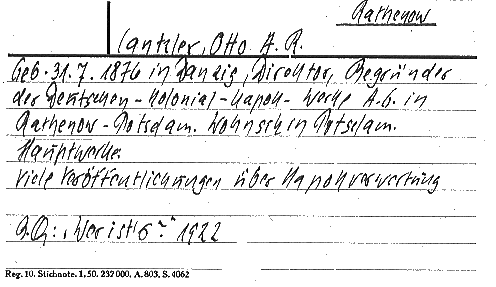 Rathenow
Cantzler, Otto A. R.
Geb. 31. 7. 1876 in Danzig, Direktor, Begründer
der Deutschen-Kolonial-Kapok-Werke A.G. in
Rathenow-Potsdam. Wohnsitz in Potsdam.
Hauptwerke:
Viele Veröffentlichungen über Kapokverwertung
B.Q.: „Wer ist's?" 1922
Reg. 10. Stichnote. 1, 50. 237 000. A. 803. S. 4062